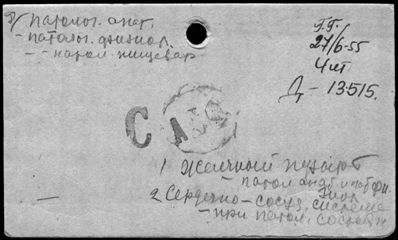 8/ патолог. анат.
- патолог. физиол.
- - патол. пищевар
Г.Г.
27/6-55
4 мт
Д - 13515.
С А
1 Желчный пузырь
- патол анат. и пат физиол
2 Сердечно-сосуд. система
- при патол. состоян